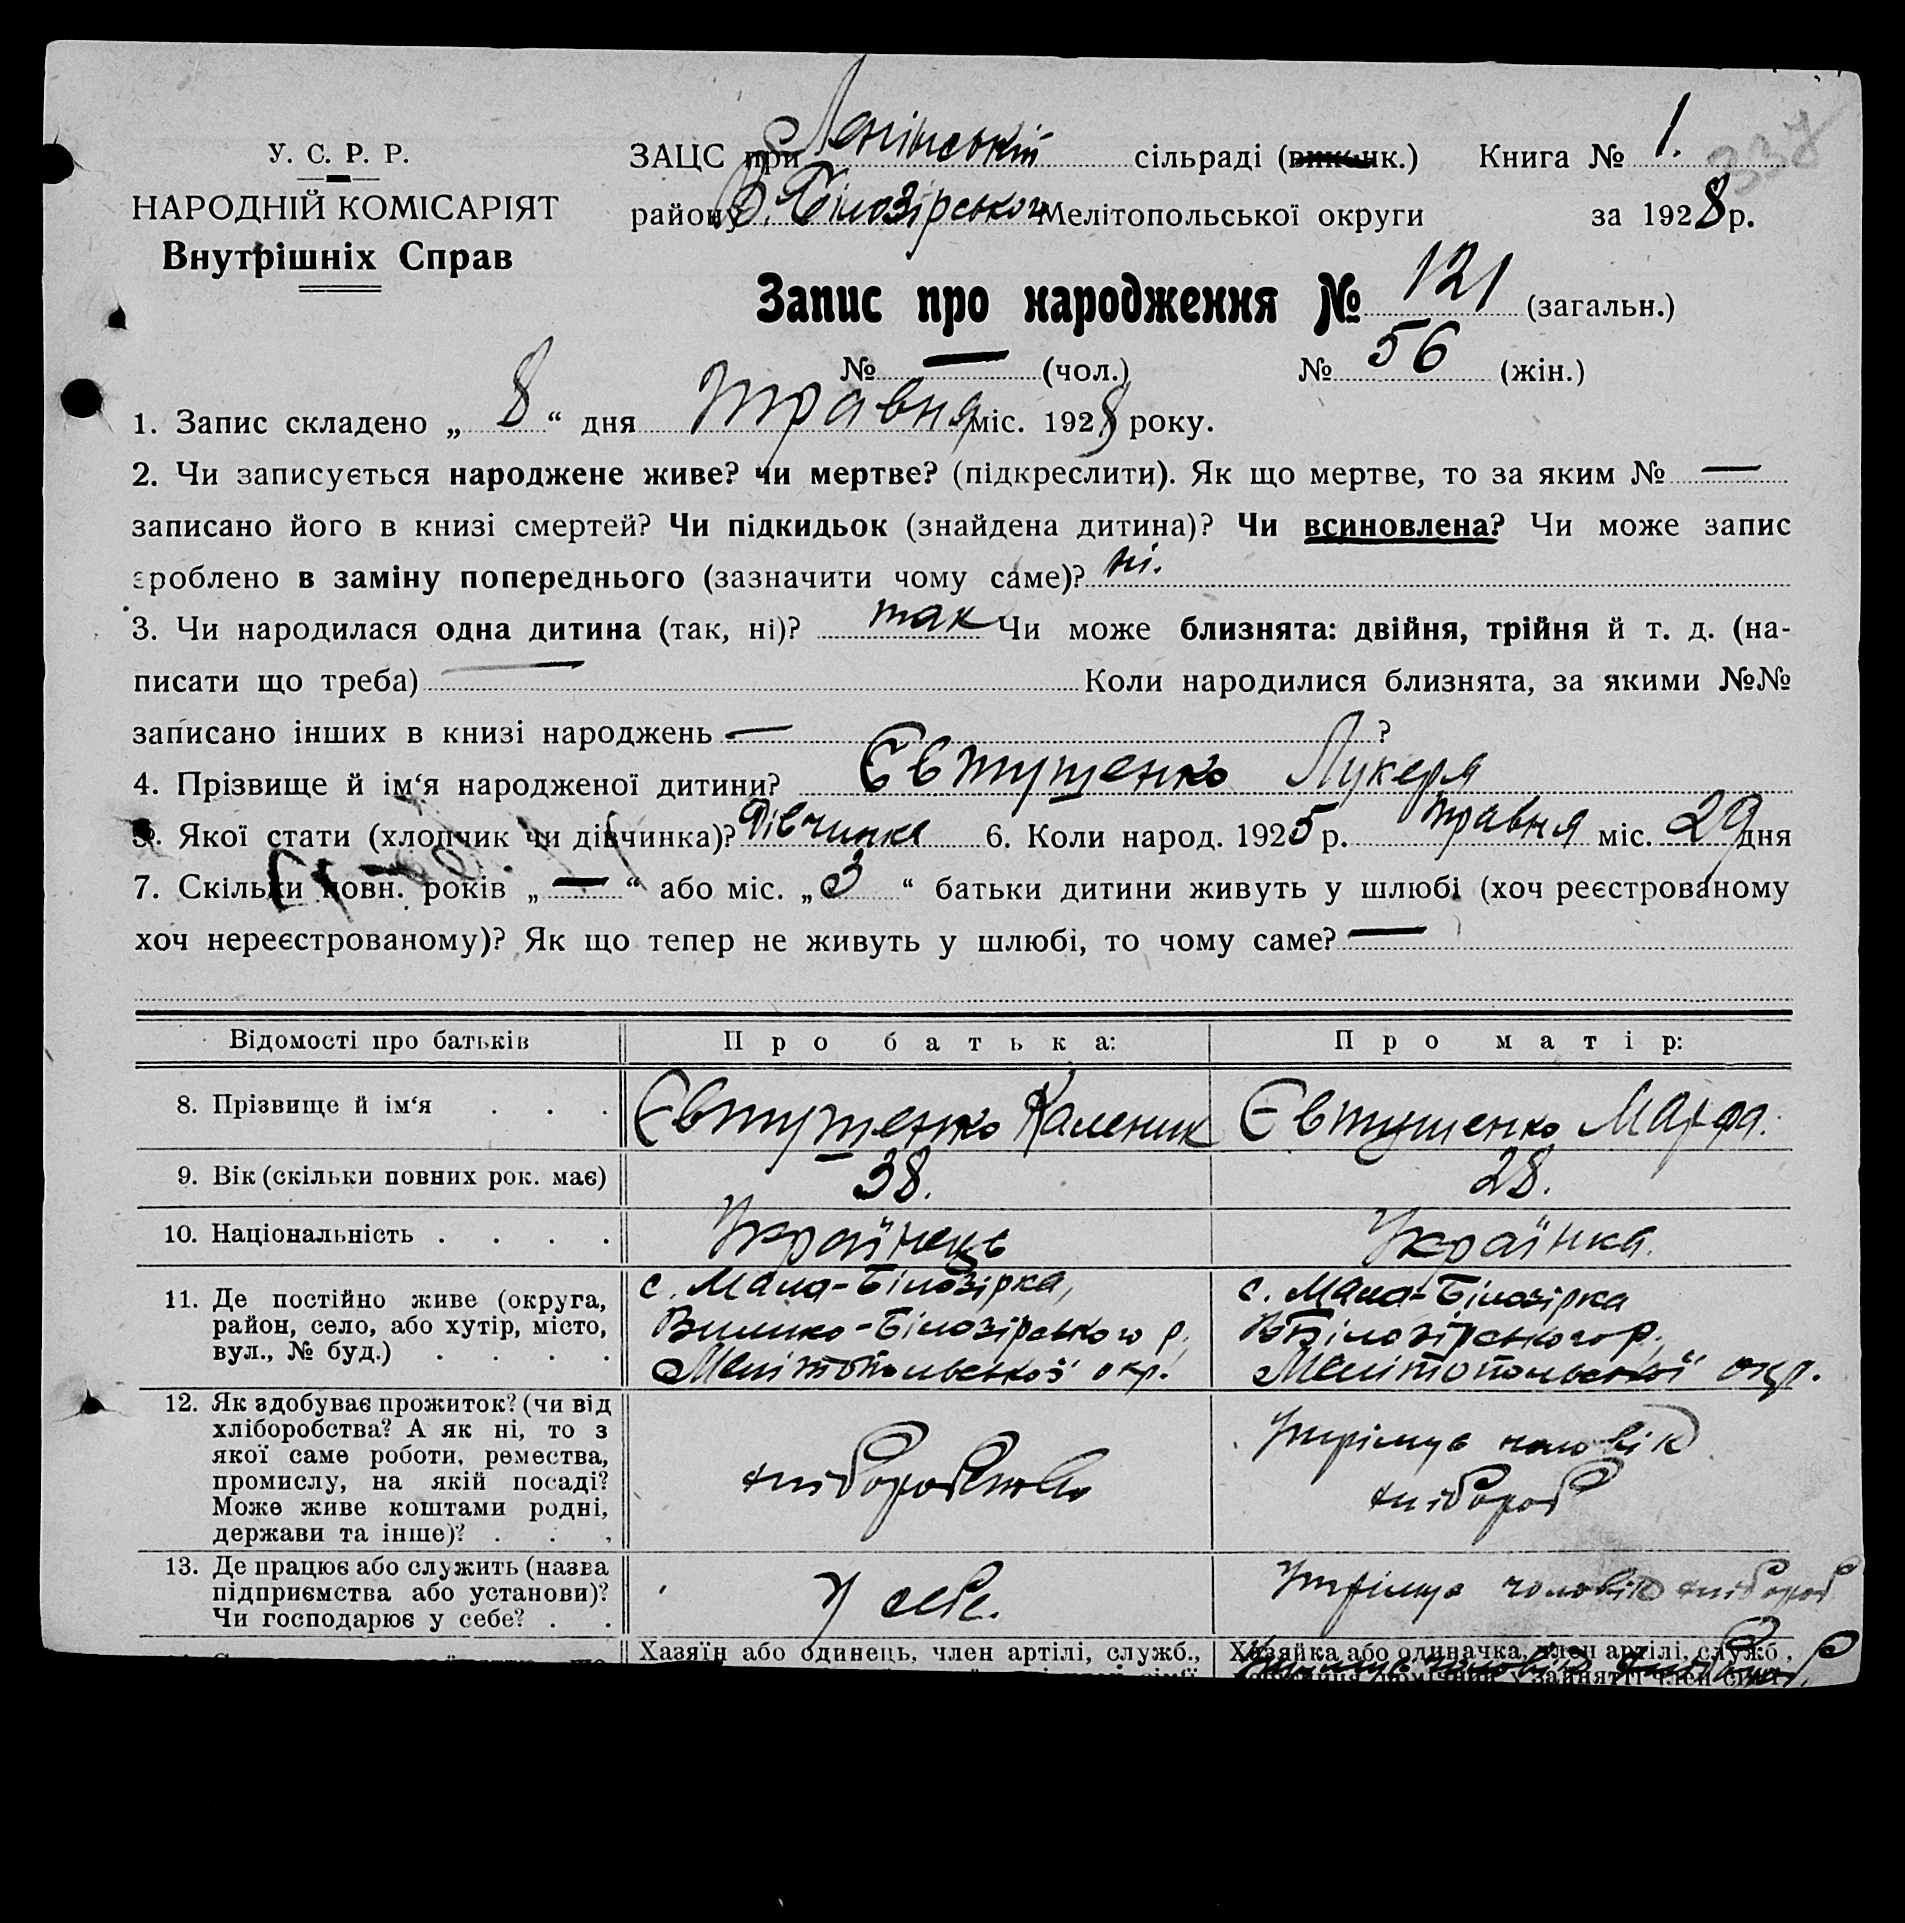 У. С. Р. Р.
НАРОДНІЙ КОМІСАРІЯТ
Внутрішніх Справ
ЗАЦС при Ленінській сільраді (викинк.) Книга № 1.
району В. Білозірської Мелітопольської округи за 1928 р.
Запис про народження № 121 (загальн.)
№ — (чол.) № 56 (жін.)
1. Запис складено „ 8 “ дня Травня міс. 1928 року.
2. Чи записується народжене живе? чи мертве? (підкреслити). Як що мертве, то за яким № —
записано його в книзі смертей? Чи підкидьок (знайдена дитина)? Чи всиновлена? Чи може запис
зроблено в заміну попереднього (зазначити чому саме)? ні.
3. Чи народилася одна дитина (так, ні)? так Чи може близнята: двійня, трійня й т. д. (на-
писати що треба) — Коли народилися близнята, за якими №№
записано інших в книзі народжень — ?
4. Прізвище й ім‘я народженої дитини? Євтушенко Лукеря
5. Якої стати (хлопчик чи дівчинка)? Дівчинка 6. Коли народ. 1925 р. травня міс. 29 дня
7. Скільки повн. років „ — “ або міс. „ 3 “ батьки дитини живуть у шлюбі (хоч реєстрованому
хоч нереєстрованому)? Як що тепер не живуть у шлюбі, то чому саме? —
Відомості про батьків Про батька: Про матір:
8. Прізвище й ім‘я . . . Євтушенко Каленик Євтушенко Марфа.
9. Вік (скільки повних рок. має) 38. 28.
10. Національність . . . . Українець Українка.
11. Де постійно живе (округа,
район, село, або хутір, місто,
вул., № буд.) . . . .
с. Мала-Білозірка,
Велико-Білозірського р.
Мелітопольської окр.
с. Мала-Білозірка
ВБілозірського р.
Мелітопольської окр.
12. Як здобуває прожиток? (чи від
хліборобства? А як ні, то з
якої саме роботи, ремества,
промислу, на якій посаді?
Може живе коштами родні,
держави та інше)? . . .
хліборобство
Утрімує чоловік
хлібороб
13. Де працює або служить (назва
підприємства або установи)?
Чи господарює у себе? . .
У себе.
Утрімує чоловік хлібороб
Хазяїн або одинець, член артілі, служб.,
Хазяйка або одиначка, член артілі, служб.,
Утрімує чоловік хлібороб